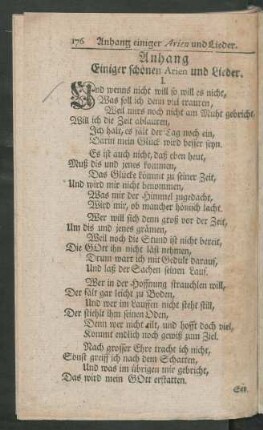 176 Anhang einiger Arien und Lieder.
Anhang
Einiger schönen Arien und Lieder.
I.
Und wenns nicht will so will es nicht,
Was soll ich denn viel trauren,
Weil mirs noch nicht am Muht gebricht,
Will ich die Zeit ablauren,
Ich halt, es fält der Tag noch ein,
Darin mein Glück wird besser seyn.
Es ist auch nicht, daß eben heut,
Muß dis und jenes kommen,
Das Glücke kommt zu seiner Zeit,
Und wird mir nicht benommen,
Was mir der Himmel zugedacht,
Wird mir, ob mancher hönisch lacht.
Wer will sich denn groß vor der Zeit,
Um dis und jenes grämen,
Weil noch die Stund ist nicht bereit,
Die GOtt ihn nicht läst nehmen,
Drum wart ich mit Gedult darauf,
Und laß der Sachen seinen Lauf.
Wer in der Hoffnung strauchlen will,
Der fält gar leicht zu Boden,
Und wer im lauffen nicht steht still,
Der stiehlt ihm seinen Oden,
Denn wer nicht eilt, und hofft doch viel,
Kommt endlich noch gewiß zum Ziel.
Nach grosser Ehre tracht ich nicht,
Sonst greiff ich nach dem Schatten,
Und was im übrigen mir gebricht,
Das wird mein GOtt erstatten.